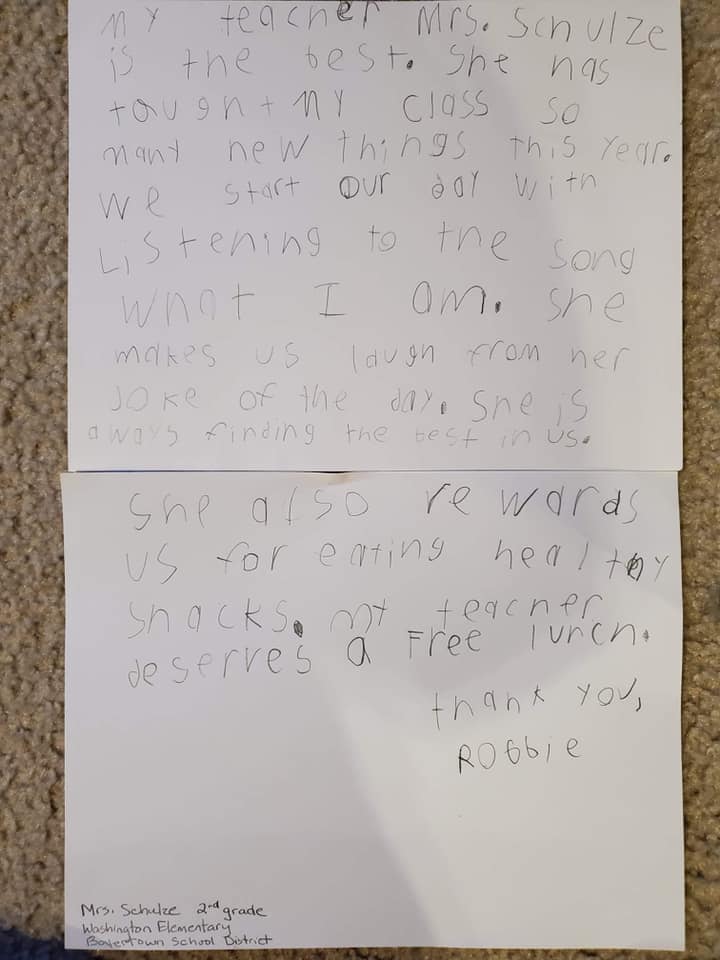 My teacher Mrs. Schulze
is the best. She has
taught my class so
many new things this year.
We start our day with
Listening to the song
What I am. She
makes us laugh from her
Joke of the day. She is
aways finding the best in us.
She also rewards
us for eating healthy
snacks. My teacher
deserves a Free lunch.
thank you,
Robbie
Mrs. Schulze 2nd grade
Washington Elementary
Boyertown School District